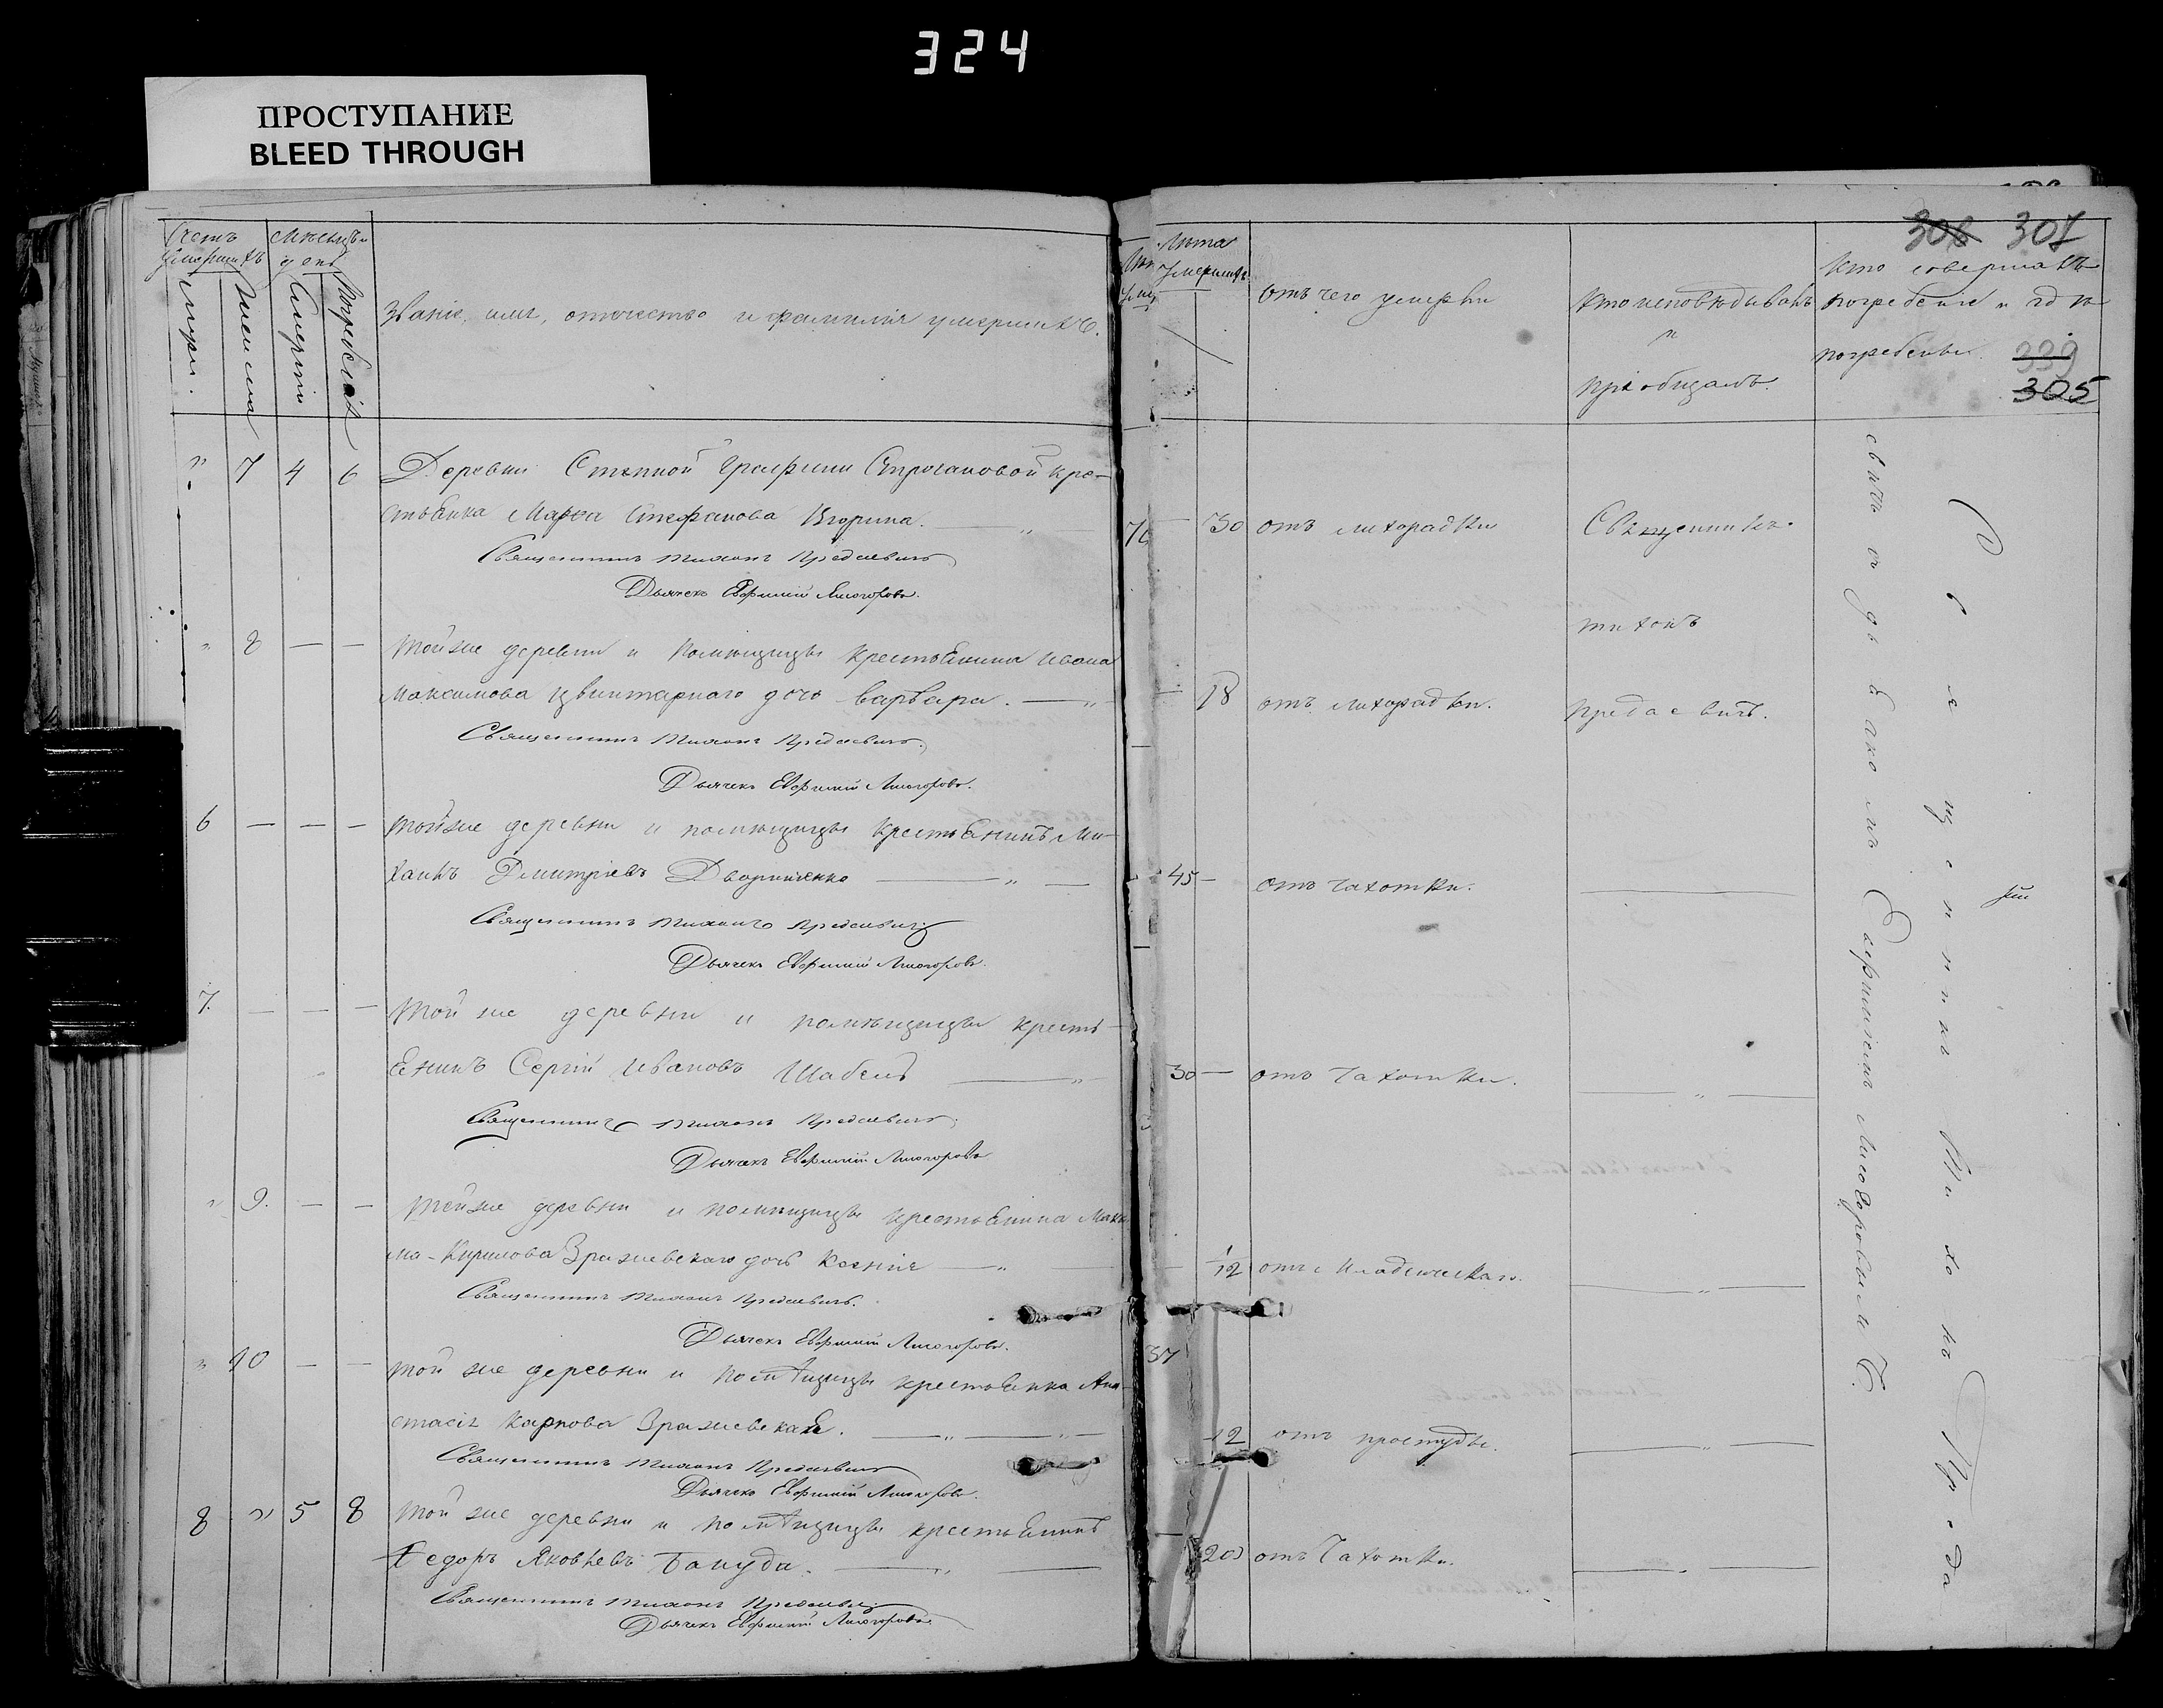 324
ПРОСТУПАНИЕ
BLEED THROUGH
Счетъ умершихъ
Мѣсяцъ и день
мужи.
женска
Смерти
Погребенія
Званіе, имя, отечество и фамилія умершихъ.
7 4 6 Деревни Степной Графини Строгановой кре-
стьянка Марѳа Стефанова
Священникъ Тихонъ Предаевичъ
Дьячекъ Евфимій Лисогоровъ.
8 — — Тойже деревни и помѣщицы крестьянина Ивана
Максимова Цвинтарнаго дочь Варвара.
Священникъ Тихонъ Предаевичъ
Дьячекъ Евфимій Лисогоровъ.
6 — — — Тойже деревни и помѣщицы крестьянинъ Ми-
хаилъ Дмитріевъ Дворниченко
Священникъ Тихонъ Предаевичъ
Дьячекъ Евфимій Лисогоровъ.
7. — — — Той же деревни и помѣщицы кресть-
янинъ Сергій Ивановъ Шабель
Священникъ Тихонъ Предаевичъ
Дьячекъ Евфимій Лисогоровъ
" 9. — — Тойже деревни и помѣщицы крестьянина Макси-
ма Кирилова Зражевскаго дочь Ксенія
Священникъ Тихонъ Предаевичъ.
Дьячекъ Евфимій Лисогоровъ.
" 10 — — Той же деревни и помѣщицы крестьянка Ана-
стасія Карпова Зражевская.
Священникъ Тихонъ Предаевичъ
Дьячекъ Евфимій Лисогоровъ.
8 " 5 8 Той же деревни и помѣщицы крестьянинъ
Ѳедоръ Яковлевъ
Священникъ Тихонъ Предаевичъ
Дьячекъ Евфимій Лисогоровъ.
307
339
305
Лѣта умершихъ
отъ чего умерли
кто исповѣдывалъ
и
пріобщалъ
кто совершалъ
погребеніе и гдѣ
погребены.
30 отъ лихорадки Священникъ
Тихонъ
18 отъ лихорадки. Предаевичъ.
45 — отъ чахотки.
30 — отъ чахотки.
12 отъ младенческаго.
37
12 отъ простуды.
20 отъ чахотки.
Священникъ Тихонъ Преда
евичъ съ дьячкомъ Евфиміемъ Лисогоровымъ